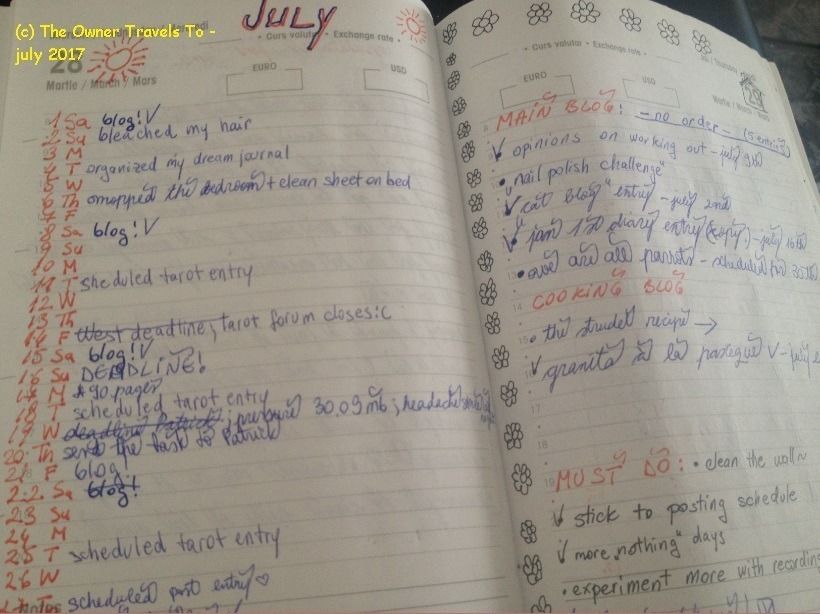 (c) The Owner Travels To -
july 2017
JULY
Curs valutar • Exchange rate
28
Martie / March / Mars
EURO
USD
1 Sa blog! V
2 Su bleached my hair
3 M
4 T organized my dream journal
5 W
6 Th mopped the bedroom + clean sheet on bed
7 F
8 Sa blog! V
9 Su
10 M
11 T scheduled tarot entry
12 W
13 Th
14 F West deadline; tarot forum closes :C
15 Sa blog! V
16 Su DEADLINE!
17 M 90 pages
18 T scheduled tarot entry
19 W deadline Patrick; pressure 30.09 mb; headache
20 Th send the task to Patrick
21 F blog!
22 Sa blog!
23 Su
24 M
25 T scheduled tarot entry
26 W
scheduled post entry ♡
Curs valutar • Exchange rate
Thursday
29
EURO
USD
MAIN BLOG: - no order - (5 entries)
V opinions on working out - july 9th
• "nail polish challenge"
V "cat blog" entry - july 2nd
V jan 1st diary entry (copy) - july 16th
• are all parrots - scheduled for
14 COOKING BLOG
15 • the strudel recipe →
V granita a la V - july
17
18
19 MUST DO: • clean the wall ~
V stick to posting schedule
V more „nothing" days
• experiment more with recording